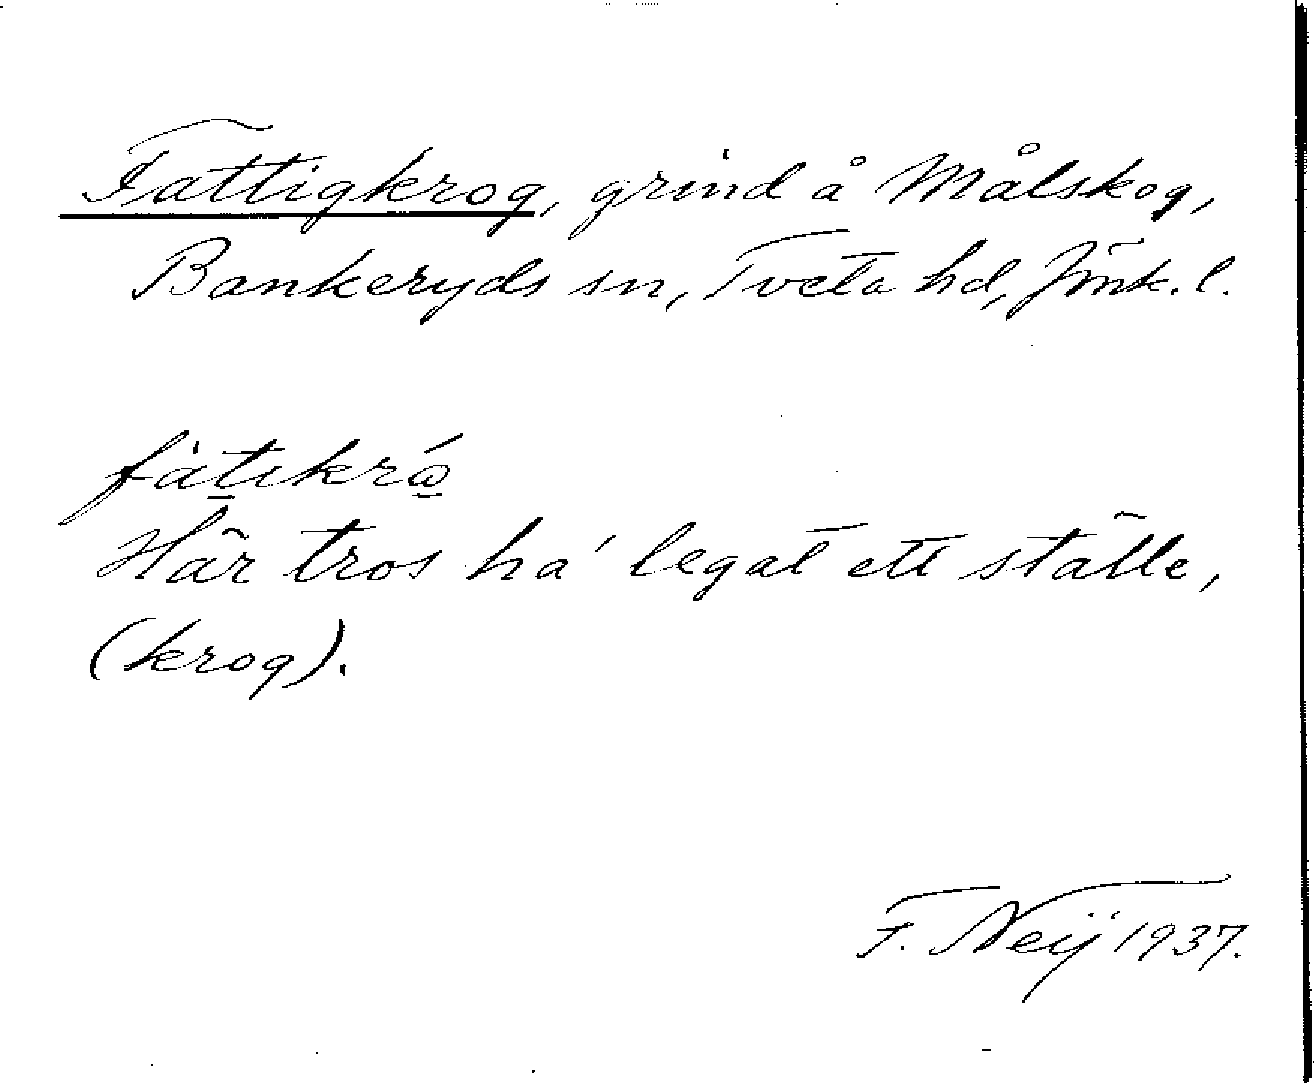 Fattigkrog, grind å Målskog,
Bankeryds sn, Tveta hd, Jönk. l.
Här tros ha' legat ett ställe,
(krog).
F. Neij 1937.